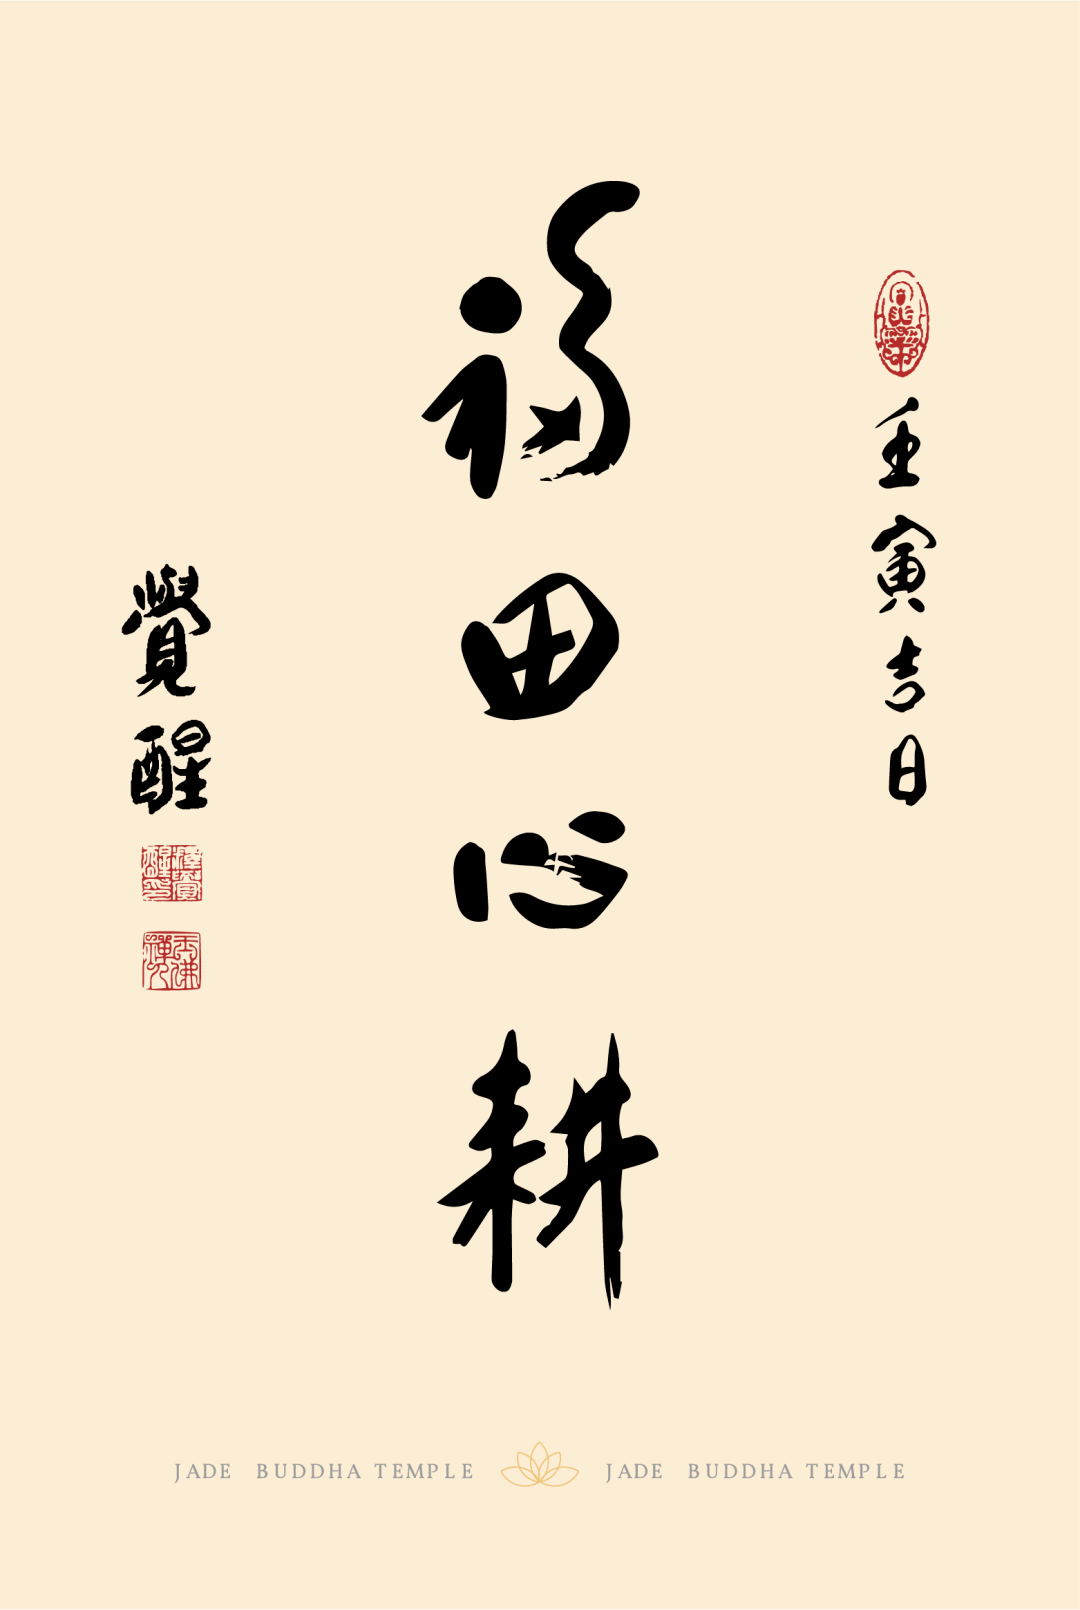 壬寅吉日
福田心耕
覺醒
JADE BUDDHA TEMPLE JADE BUDDHA TEMPLE